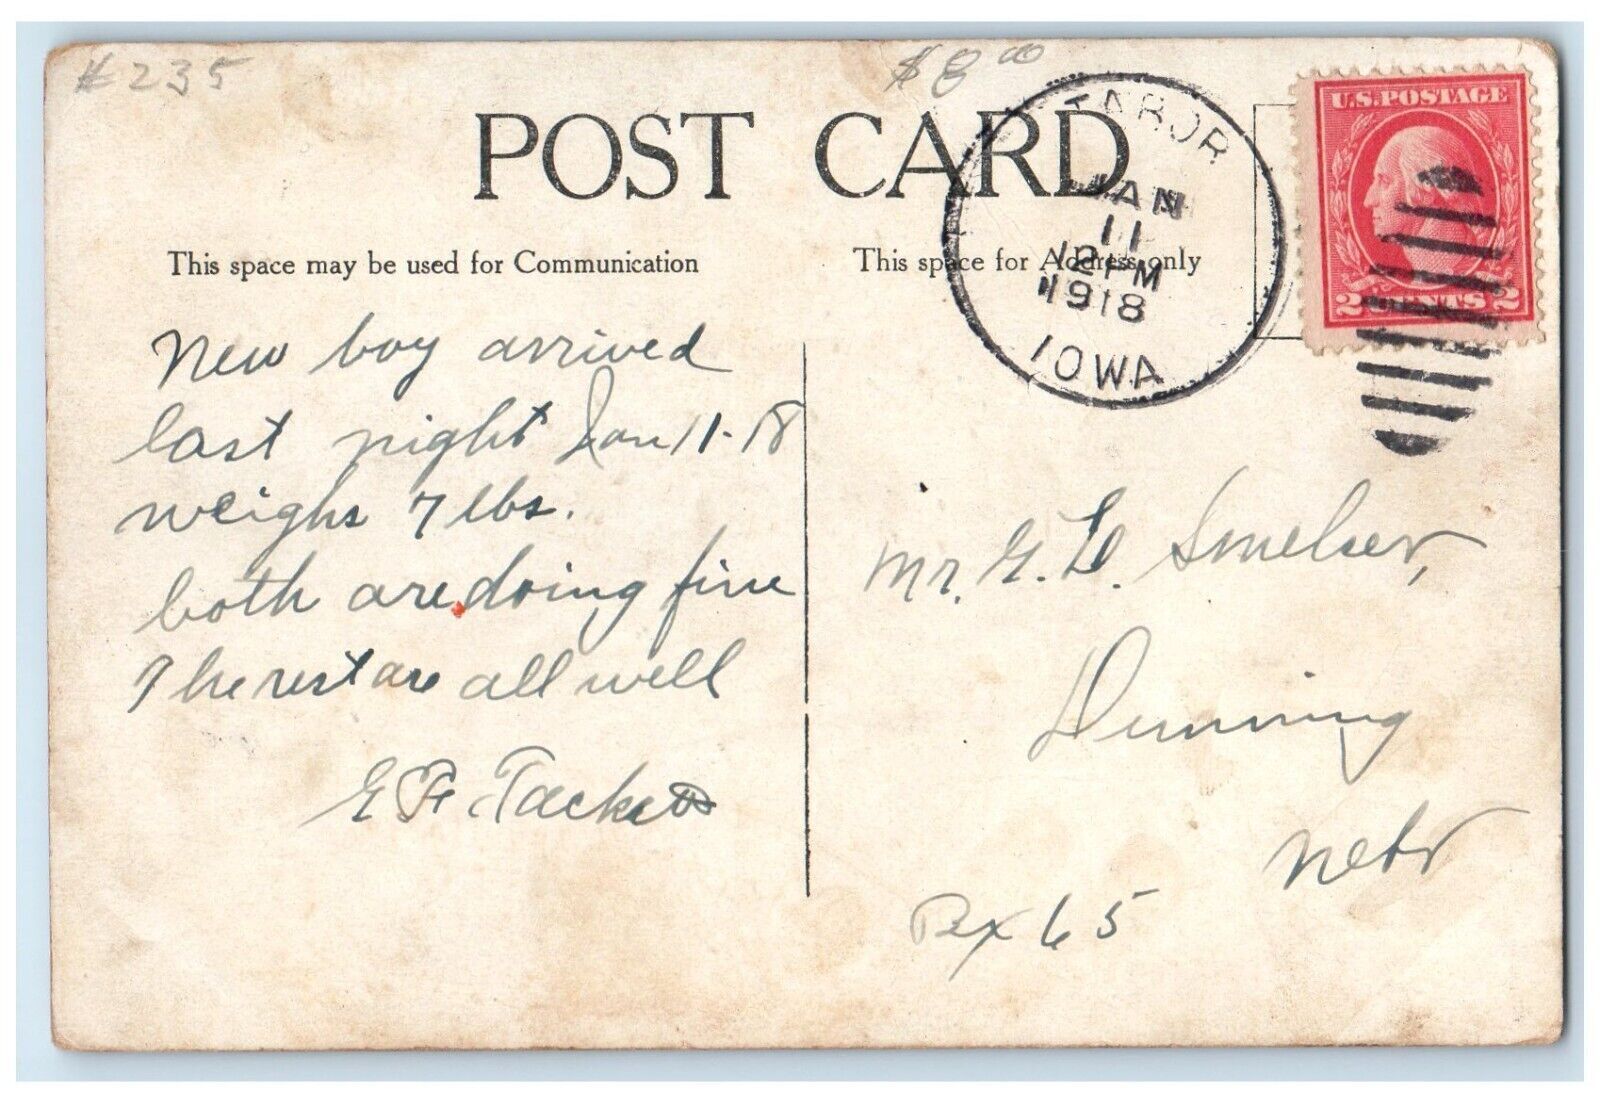 #235
$8.00
POST CARD
TABOR
JAN
11
12 PM
1918
IOWA
U.S. POSTAGE
2 CENTS 2
This space may be used for Communication
This space for Address only
New boy arrived
last night Jan 11-18
weighs 7 lbs.
both are doing fine
The rest are all well
Tackett
Mr. G. L. Smelser,
Dunning
Nebr
Bx 65